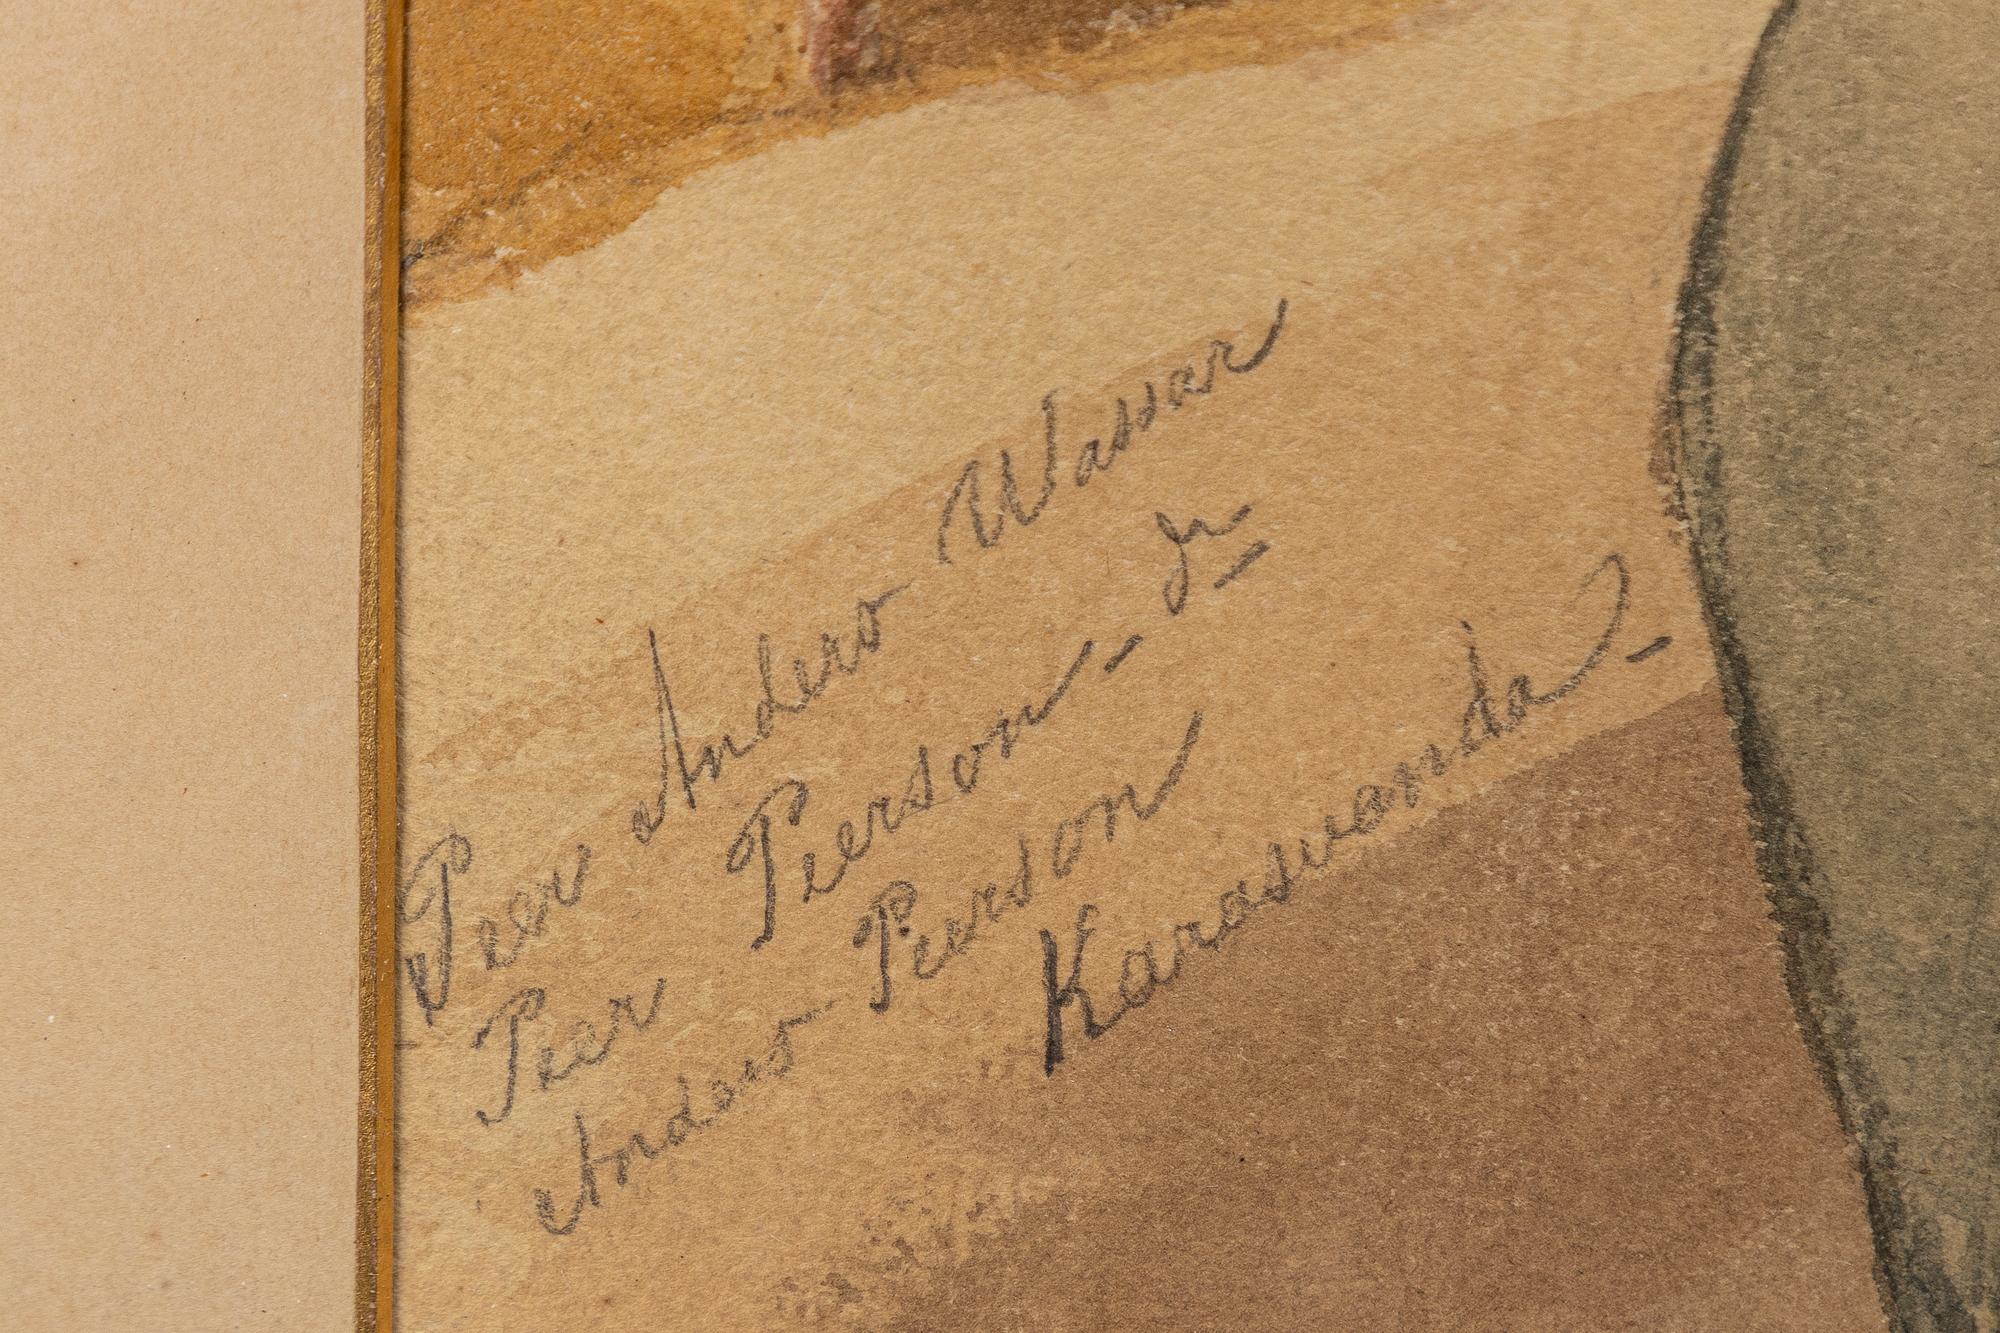 Peer Andero Wassar
Peer Peerson - Jr
Andero Peerson
Karaswanda -